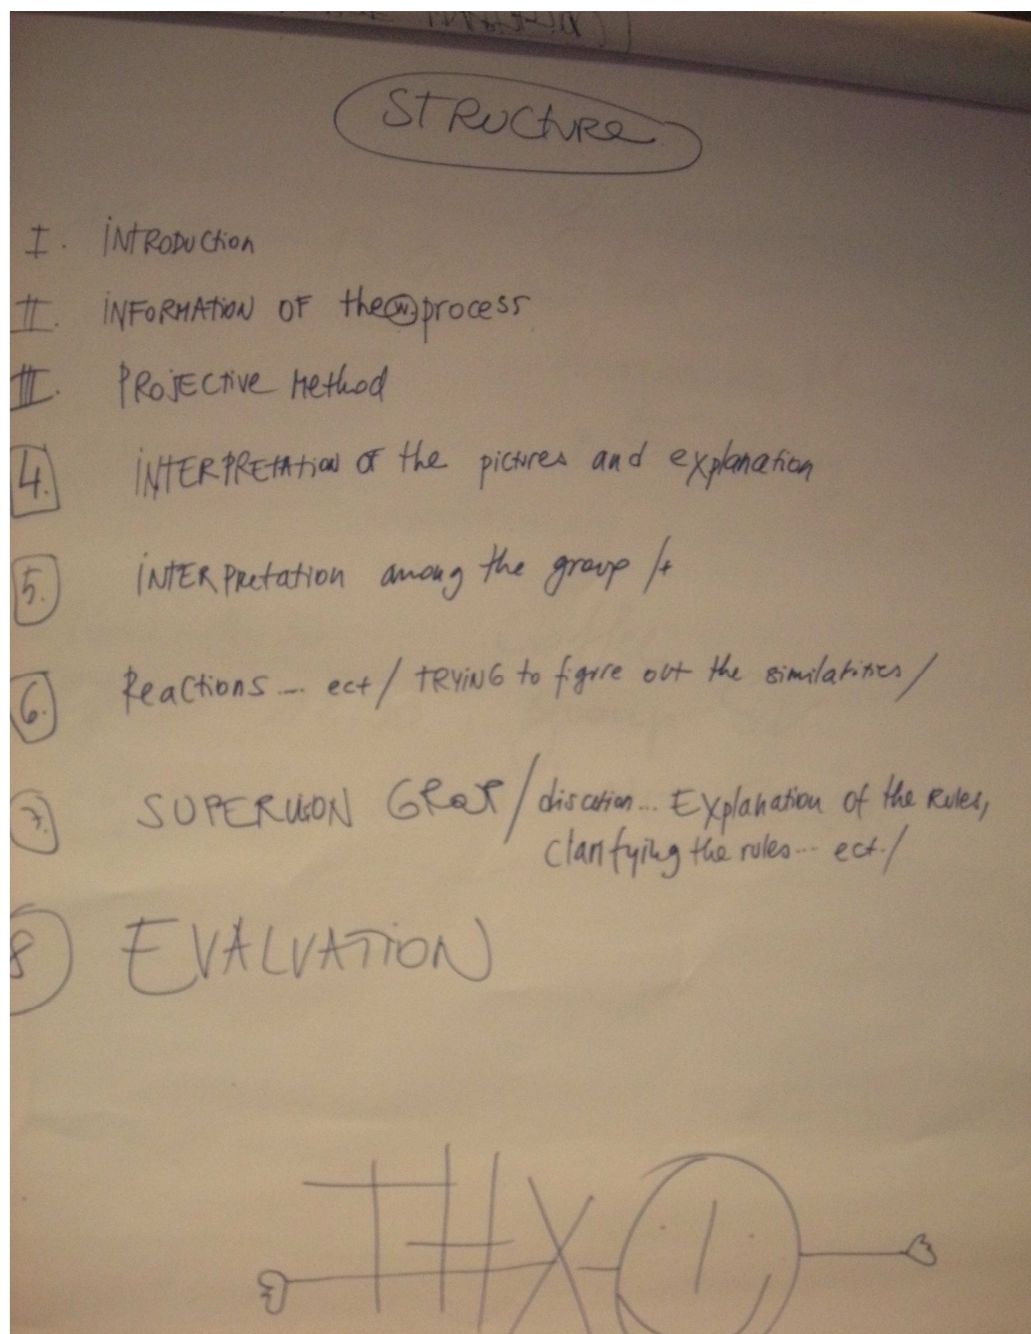 STRUCTURE
I. INTRODUCTION
II. INFORMATION OF the (W.) process
III. PROJECTIVE Method
4. INTERPRETATION OF the pictures and explanation
5. INTERPretation among the group /+
6. Reactions ... ect / TRYING to figure out the similatities /
7. SUPERVISION GROUP / discution... Explanation of the Rules,
clarifying the rules... ect. /
8 EVALUATION
THX